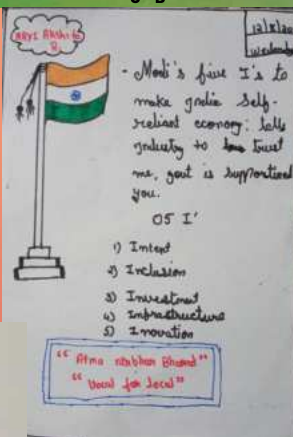 - Modi's five I's to
make India self-
reliant economy: tells
industry to trust
me, govt is supportiond
you.
05 I'
1) Intent
2) Inclusion
3) Investment
4) Infrastructure
5) Inovation
"Atma nirbhar Bharat"
"Vocal for local"